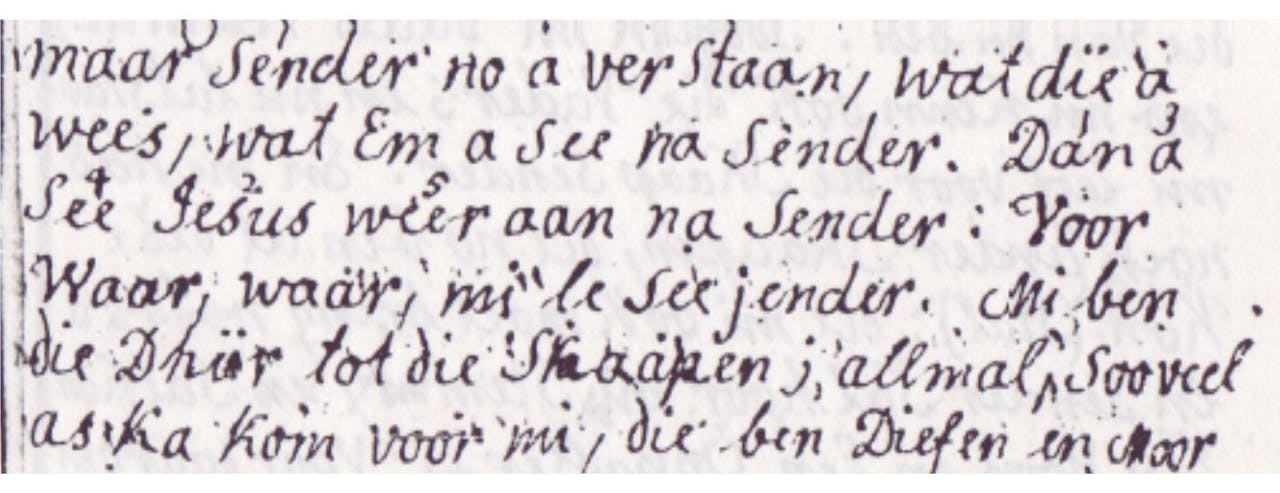 maar sender no a ver staan, wat die a
wees, wat Em a see na sender. Dan a
see Jesus weer aan na sender: Voor
Waar, waar, mi le see jender. Mi ben
die Dhür tot die Skaapen; allmal, Sooveel
as Ka Kom voor mi, die ben Diefen en Moor